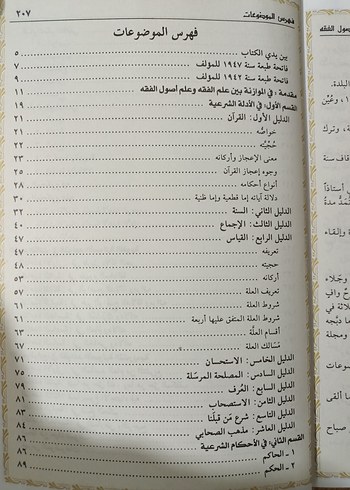 فهرس الموضوعات ٢٠٧
فهرس الموضوعات
بين يدي الكتاب ٥
فاتحة طبعة سنة ١٩٤٧ للمؤلف ٧
فاتحة طبعة سنة ١٩٤٢ للمؤلف ٩
مقدمة: في الموازنة بين علم الفقه وعلم أصول الفقه ١١
القسم الأول: في الأدلة الشرعية ١٩
الدليل الأول: القرآن ٢١
خواصُّه ٢١
حُجّيَّته ٢٢
معنى الإعجاز وأركانه ٢٣
وجوه إعجاز القرآن ٢٥
أنواع أحكامه ٢٨
دلالة آياته إما قطعية وإما ظنية ٣٠
الدليل الثاني: السنة ٣٢
الدليل الثالث: الإجماع ٤٠
الدليل الرابع: القياس ٤٧
تعريفه ٤٧
حجيته ٤٨
أركانه ٥٣
تعريف العلة ٥٧
شروط العلة ٦١
شروط العلة المتفق عليها أربعة ٦١
أقسام العلَّة ٦٣
مَسَالك العلة ٦٧
الدليل الخامس: الاستحسان ٧١
الدليل السادس: المصلحة المرسَلة ٧٥
الدليل السابع: العُرف ٧٩
الدليل الثامن: الاستصحاب ٨١
الدليل التاسع: شرع مَن قبلَنا ٨٣
الدليل العاشر: مذهب الصحابي ٨٤
القسم الثاني: في الأحكام الشرعية ٨٦
١ - الحاكم ٨٦
٢ - الحكم ٨٩
صول الفقه
البلدة.
١، وعُيِّن
ة، وترك
قاف سنة
ي أستاذاً
مدة
وإلقاء
وجَلاء
حٌ وافٍ
ثلاثة في
ومجلة
ما ألقى
صباح